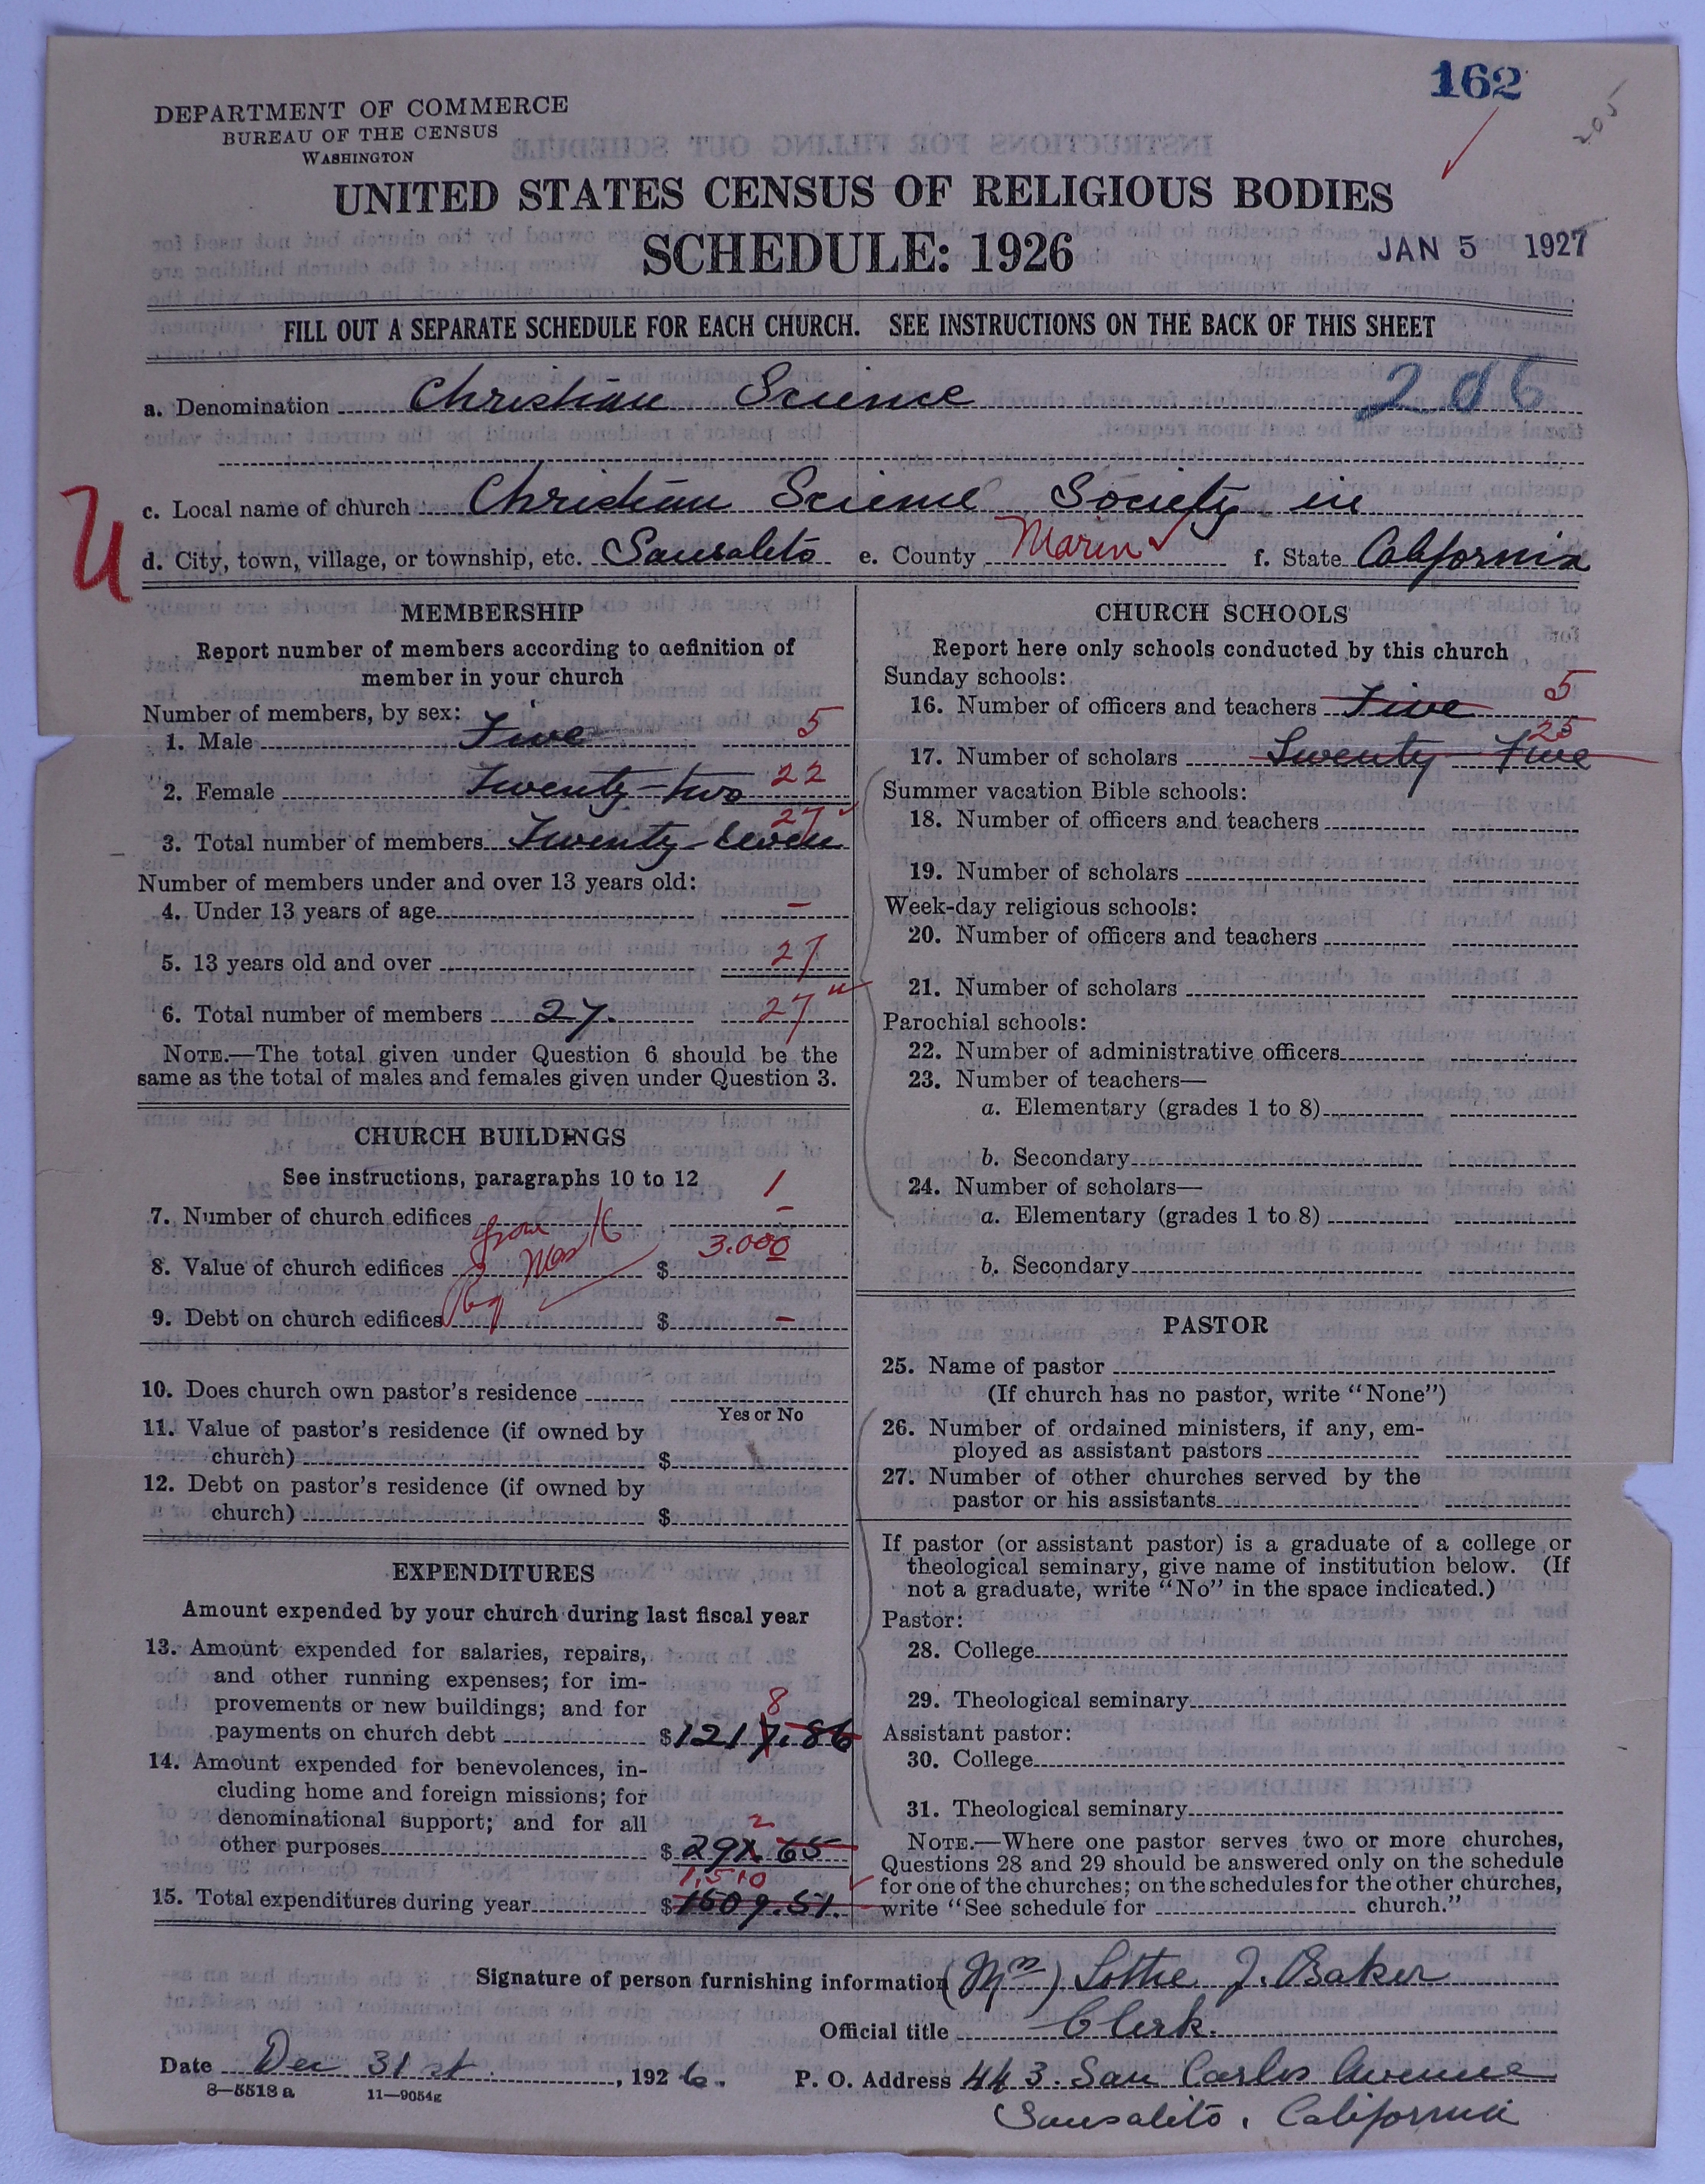 162
205
DEPARTMENT OF COMMERCE
BUREAU OF THE CENSUS
WASHINGTON
UNITED STATES CENSUS OF RELIGIOUS BODIES
SCHEDULE: 1926
JAN 5 1927
FILL OUT A SEPARATE SCHEDULE FOR EACH CHURCH. SEE INSTRUCTIONS ON THE BACK OF THIS SHEET
a. Denomination Christian Science 206
c. Local name of church Christian Science Society in
U
d. City, town, village, or township, etc. Sausalito e. County Marin f. State California
MEMBERSHIP
Report number of members according to definition of
member in your church
Number of members, by sex:
1. Male Five 5
2. Female Twenty-two 22
3. Total number of members Twenty-seven 27
Number of members under and over 13 years old:
4. Under 13 years of age –
5. 13 years old and over 27
6. Total number of members 27. 27
NOTE.—The total given under Question 6 should be the
same as the total of males and females given under Question 3.
CHURCH BUILDINGS
See instructions, paragraphs 10 to 12
7. Number of church edifices 1
8. Value of church edifices $ 3.000
9. Debt on church edifices $ –
10. Does church own pastor's residence
Yes or No
11. Value of pastor's residence (if owned by
church) $
12. Debt on pastor's residence (if owned by
church) $
EXPENDITURES
Amount expended by your church during last fiscal year
13. Amount expended for salaries, repairs,
and other running expenses; for im-
provements or new buildings; and for
8
payments on church debt $1217.86
14. Amount expended for benevolences, in-
cluding home and foreign missions; for
denominational support; and for all
2
other purposes $ 291.65
1,510
15. Total expenditures during year $1509.51.
CHURCH SCHOOLS
Report here only schools conducted by this church
Sunday schools:
16. Number of officers and teachers Five 5
17. Number of scholars Twenty-Five 25
Summer vacation Bible schools:
18. Number of officers and teachers
19. Number of scholars
Week-day religious schools:
20. Number of officers and teachers
21. Number of scholars
Parochial schools:
22. Number of administrative officers
23. Number of teachers—
a. Elementary (grades 1 to 8)
b. Secondary
24. Number of scholars—
a. Elementary (grades 1 to 8)
b. Secondary
PASTOR
25. Name of pastor
(If church has no pastor, write "None")
26. Number of ordained ministers, if any, em-
ployed as assistant pastors
27. Number of other churches served by the
pastor or his assistants
If pastor (or assistant pastor) is a graduate of a college or
theological seminary, give name of institution below. (If
not a graduate, write "No" in the space indicated.)
Pastor:
28. College
29. Theological seminary
Assistant pastor:
30. College
31. Theological seminary
NOTE.—Where one pastor serves two or more churches,
Questions 28 and 29 should be answered only on the schedule
for one of the churches; on the schedules for the other churches,
write "See schedule for church."
Signature of person furnishing information (Mrs) Lottie J. Baker
Official title Clerk.
Date Dec 31st, 1926. P. O. Address 443 San Carlos Avenue
8—5518a 11—9054g
Sausalito, California